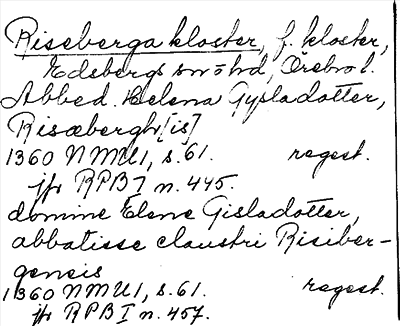 Riseberga kloster, f. kloster,
Edsbergs sn o hd, Örebro l.
Abbed. Helena Gysladotter,
Risæbergh[is]
1360 NMU1, s. 61. regest.
jfr RPB I n. 445.
domine Elene Gisladotter,
abbatisse claustri Risiber-
gensis
1360 NMU1, s. 61. regest.
jfr RPB I n. 457.